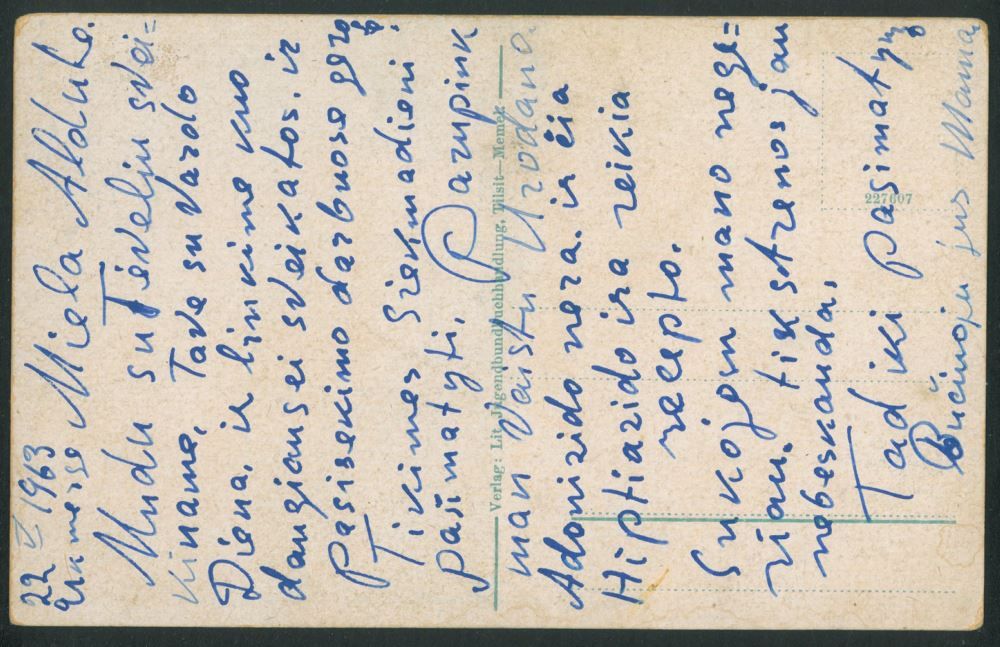 22 V 1963
Miela Aldute.
Mudu su Tėveliu svei=
kiname, Tave su Vardo
Diena. ir linkime kuo
daugiausei sveikatos. ir
pasisekimo darbuose gero
Tikimes Siekmadieni
pasimatyti. Parupink
man Vaistu Urodano.
Adomizido nera. ir čia
Hiptiazido ira reikia
recepto.
Su kojom mano nege=
riau. tik strenos jau
nebeskauda,
Tad iki pasimatym
Bučinoju jus Mama
Verlag: Lit. Jugendbund Buchhandlung, Tilsit—Memel
227607